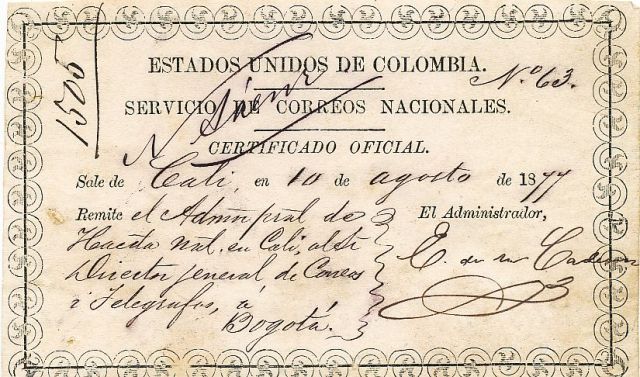 1505
ESTADOS UNIDOS DE COLOMBIA.
Nº 63.
SERVICIO DE CORREOS NACIONALES.
CERTIFICADO OFICIAL.
Sale de Cali, en 10 de agosto de 1877
Remite el Admor pral de
El Administrador,
Hacda nal. en Cali, al Sr
Director general de Correos
i Telegrafos, á
Bogotá.
E. de